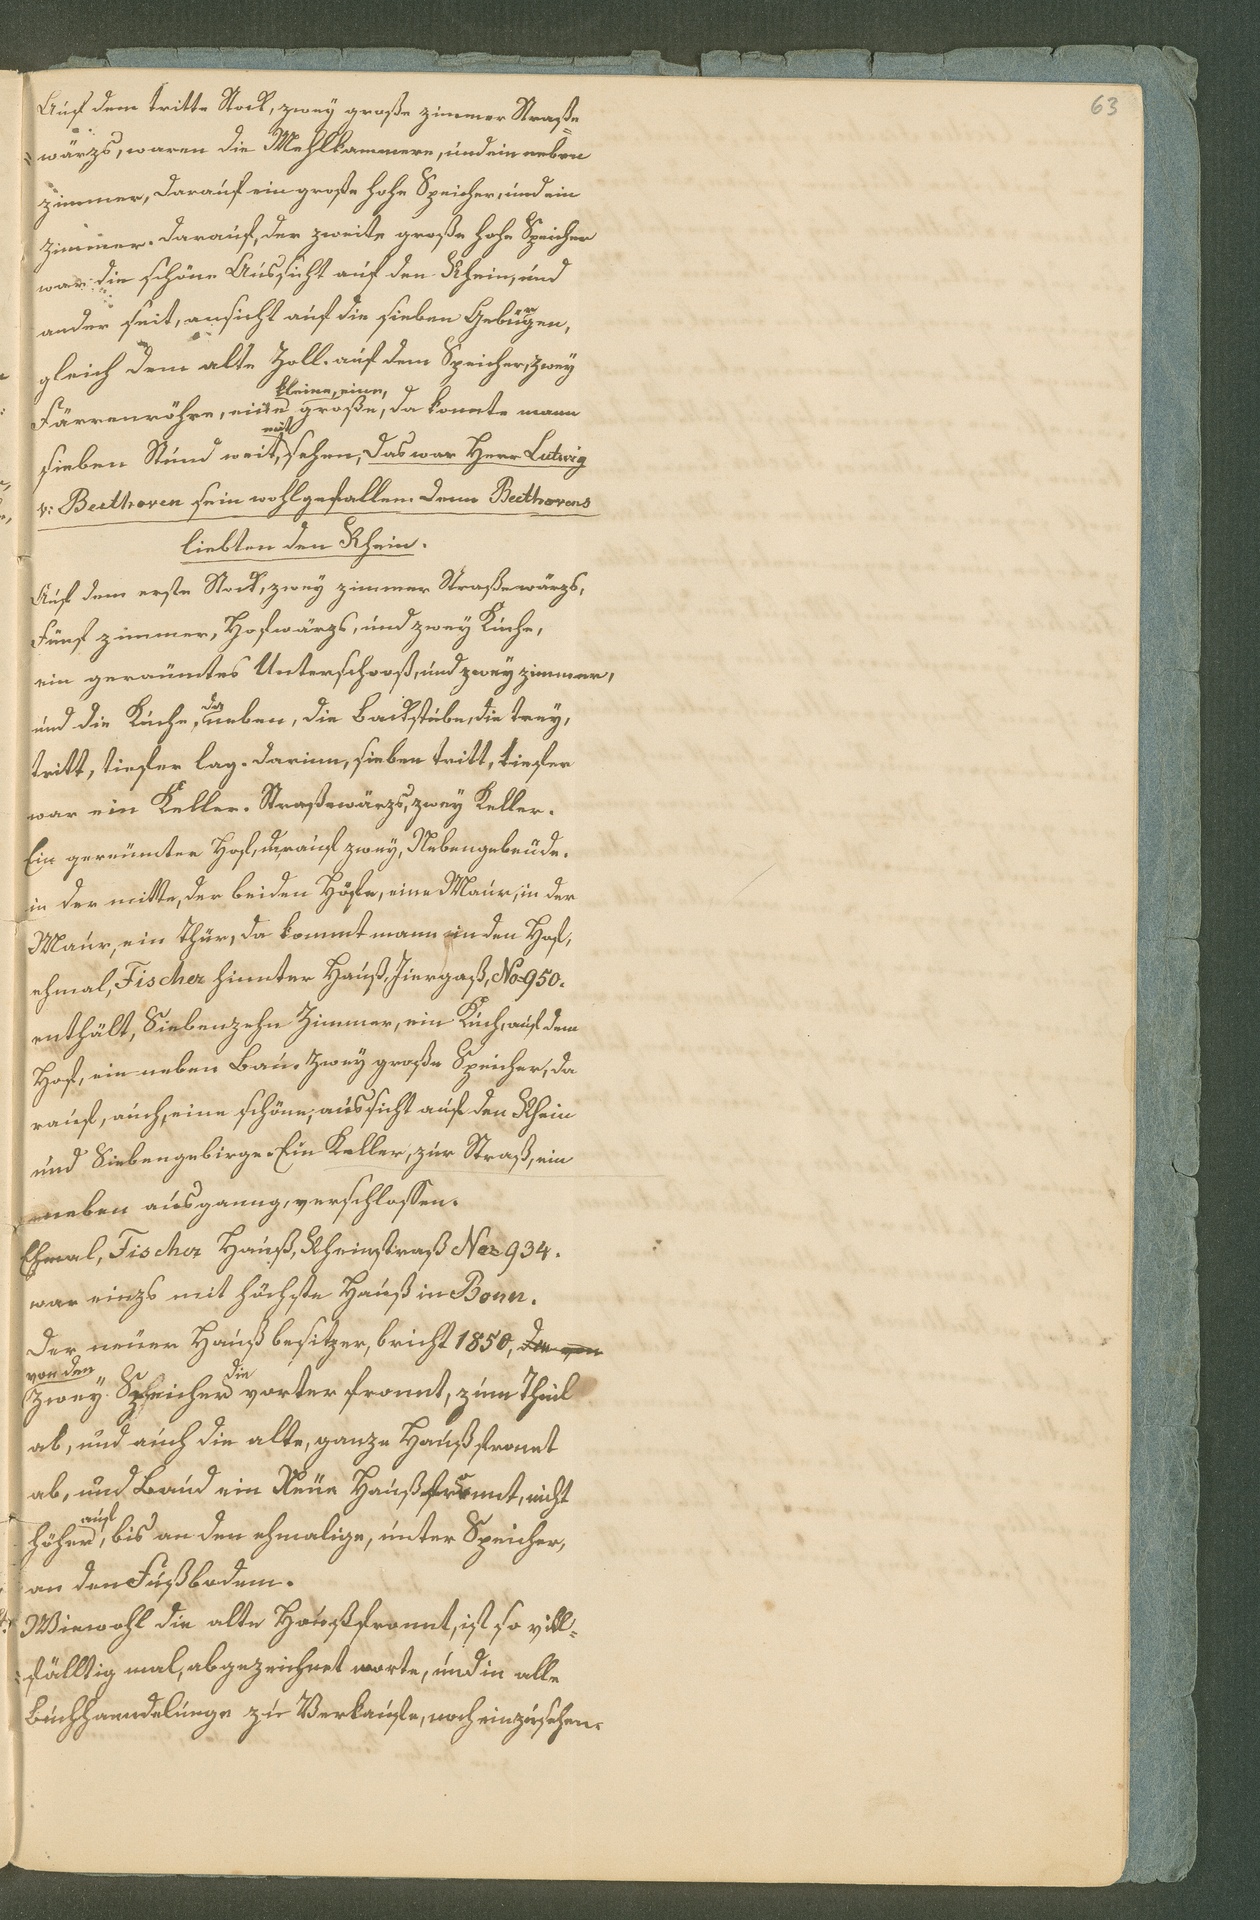 63
Auf dem tritte Stock, zwey große zimmer Straße
wärzs, waren die Mehlkammere, und ein neben
zimmer, darauf ein große hohe Speicher, und ein
zimmer. darauf, der zweite große hohe Speicher
war die schöne Aussicht auf den Rhein, und
ander seit, ansicht auf die sieben Gebürgen,
gleich dem alte Zoll. auf dem Speicher, zwey
kleine, eine,
Färrenröhre, eine große, da konnte mann
mit
sieben Stund weit, sehen, das war Herr Lutwig
v: Beethoven sein wohlgefallen. denn Beethovens
liebten den Rhein.
Auf dem erste Stock, zwey zimmer Straßewärzs,
Fünf zimmer, Hofwärzs, und zwey Küche,
ein geraümtes Unterschooß, und zwey zimmer,
und die Küche, da neben, die Backstube, die trey,
tritt, tiefer lag. darinn, sieben tritt, tiefer
war ein Keller. Straßewärzs, zwey Keller.
Ein gereümter Hof, darauf zwey, Nebengebeüde.
in der mitte, der beiden Höfe, eine Maur, in der
Maur, ein thür, da kommt mann in den Hof,
ehmal, Fischer hinnter Hauß, Giergaß, No 950.
enthält, Siebenzehn Zimmer, ein Küch, auf dem
Hof, ein neben Bau. Zwey große Speicher, da
rauf, auch, eine schöne, aussicht auf den Rhein
und Siebengebirge. Ein Keller, zur Straß, ein
neben ausganng, verschlossen.
Ehmal, Fischer Hauß, Rheinstraß No 934.
war einzs mit höchste Hauß in Bonn.
Der neüer Hauß besitzer, bricht 1850,
von den die
Zwey Speicher vorter fronnt, zum Theil
ab, und auch die alte, ganze Haußfronnt
ab, und Baud ein Neüe Haußfronnt, nicht
auf
höher, bis an den ehmalige, unter Speicher,
an den Fußbodem.
Wiewohl die alte Haußfronnt, ist so viel=
fälltig mal, abgezeichnet worte, und in alle
Buchhanndelunge zu Verkaufe, noch einzusehen.